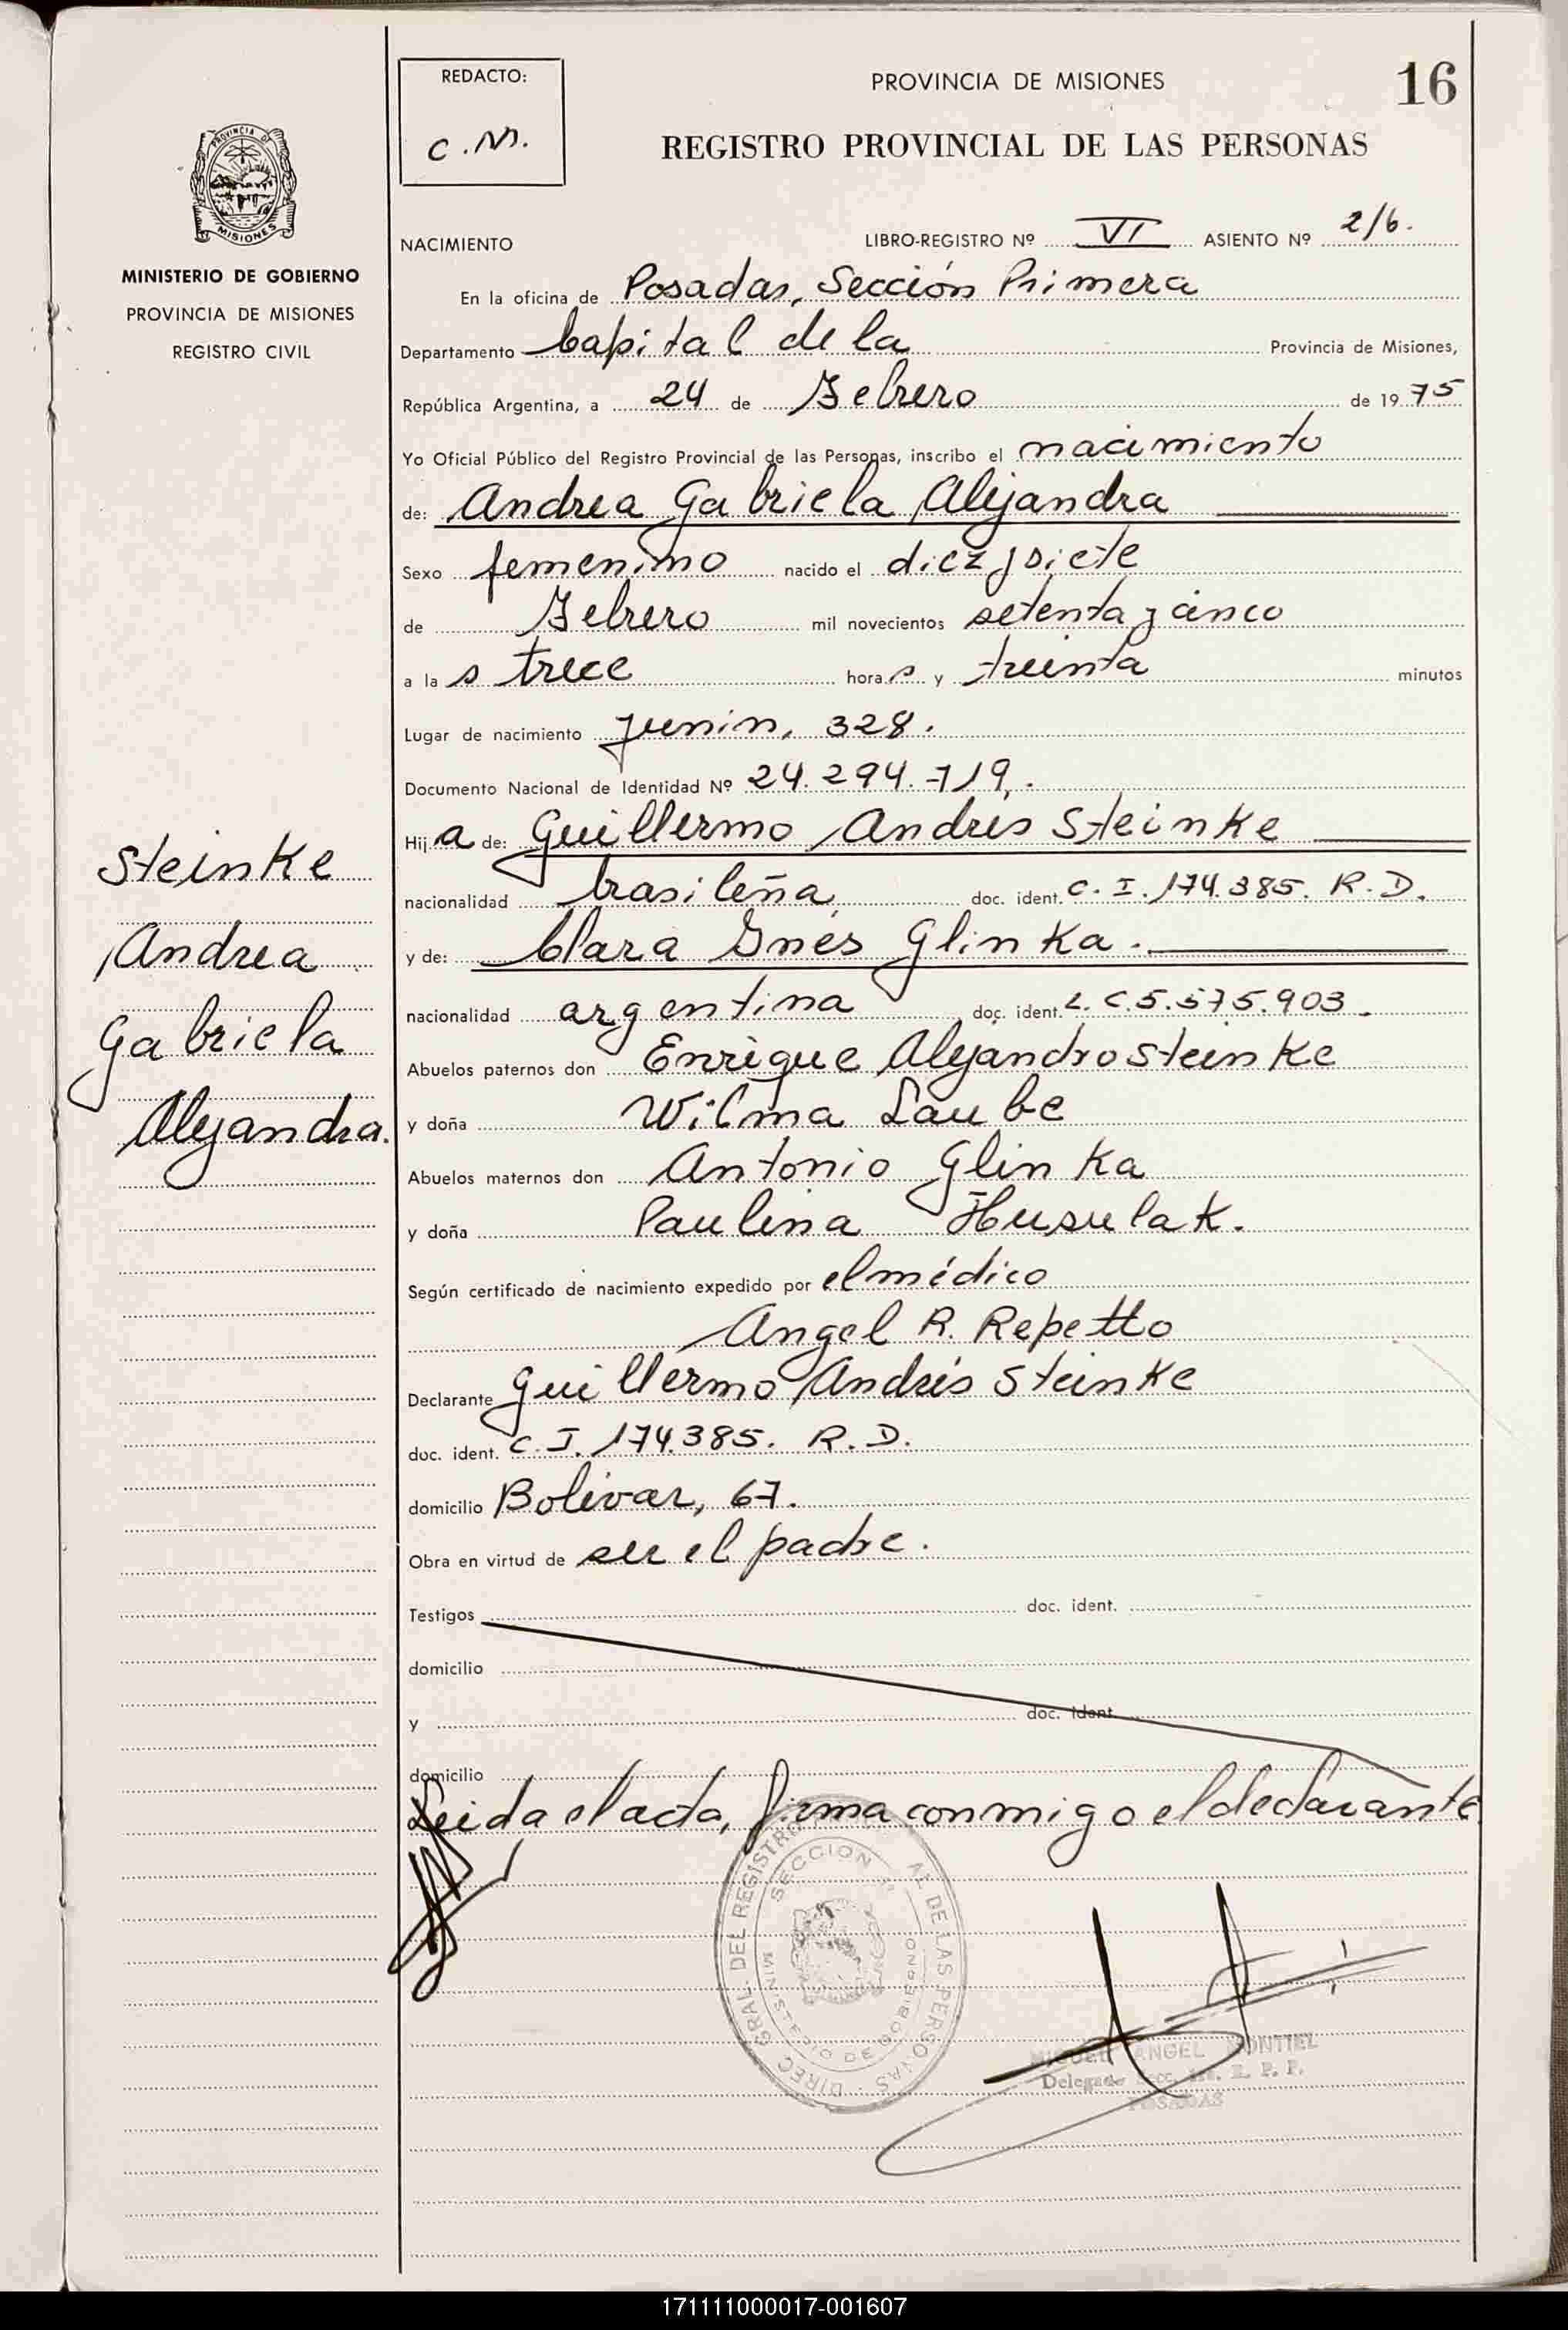 REDACTO:
C.M.
PROVINCIA DE MISIONES
16
REGISTRO PROVINCIAL DE LAS PERSONAS
PROVINCIA DE
MISIONES
MINISTERIO DE GOBIERNO
PROVINCIA DE MISIONES
REGISTRO CIVIL
NACIMIENTO
LIBRO-REGISTRO Nº VI ASIENTO Nº 216.
En la oficina de Posadas, Sección Primera
Departamento Capital de la Provincia de Misiones,
República Argentina, a 24 de Febrero de 1975
Yo Oficial Público del Registro Provincial de las Personas, inscribo el nacimiento
de: Andrea Gabriela Alejandra
Sexo femenino nacido el diez y siete
de Febrero mil novecientos setenta y cinco
a la s trece hora s y treinta minutos
Lugar de nacimiento Junin, 328.
Documento Nacional de Identidad Nº 24.294.719.
Hij a de: Guillermo Andrés Steinke
nacionalidad brasileña, doc. ident. C. I. 174.385. R.D.
y de: Clara Inés Glinka.
nacionalidad argentina doc. ident. L.C. 5.575.903.
Abuelos paternos don Enrique Alejandro Steinke
y doña Wilma Laube
Abuelos maternos don Antonio Glinka
y doña Paulina Husulak.
Según certificado de nacimiento expedido por el médico
Angel R. Repetto
Declarante Guillermo Andrés Steinke
doc. ident. C.I. 174385. R.D.
domicilio Bolívar, 67.
Obra en virtud de ser el padre.
Testigos doc. ident.
domicilio
y doc. ident.
domicilio
Leida el acta, firma conmigo el declarante
Steinke
Andrea
Gabriela
Alejandra.
DIREC. GRAL. DEL REGISTRO AL DE LAS PERSONAS
SECCION
MINISTERIO DE GOBIERNO
MIGUEL ANGEL MONTIEL
Delegado Secc. 1ra. R. P. P.
POSADAS
171111000017-001607